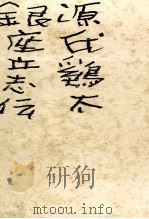 源氏鶏太
銀座立志伝
mtoou.info